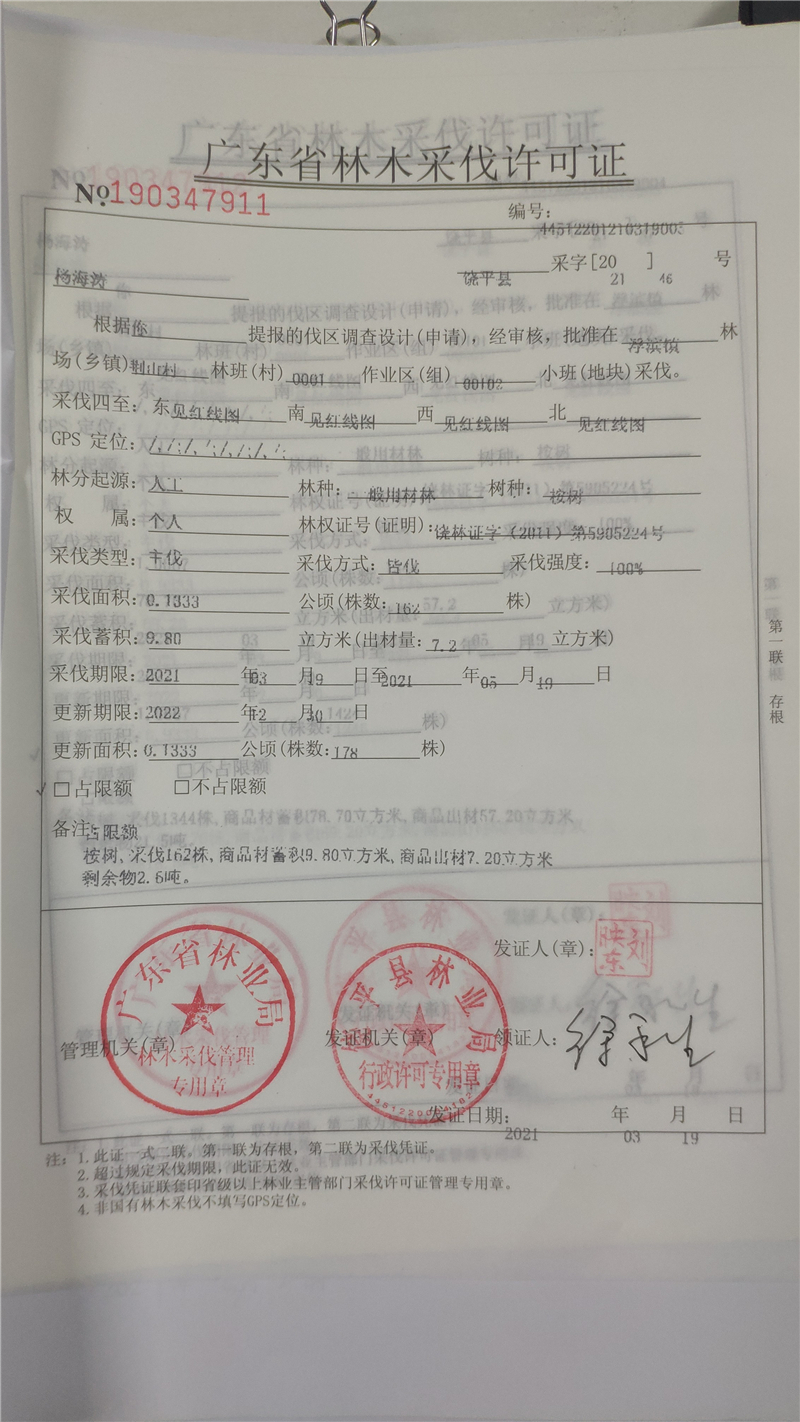 广东省林木采伐许可证
No.190347911
编号：
44512201210319003
杨海涛
饶平县 采字[20 21 ] 46 号
根据你 提报的伐区调查设计(申请)，经审核，批准在 浮滨镇 林
场(乡镇) 荆山村 林班(村) 0001 作业区(组) 00102 小班(地块)采伐。
采伐四至：东 见红线图 南 见红线图 西 见红线图 北 见红线图
GPS 定位：/,/;/,/;/,/;/,/;
林分起源：人工 林种：一般用材林 树种：桉树
权 属：个人 林权证号(证明)：饶林证字（2011）第5905224号
采伐类型：主伐 采伐方式：皆伐 采伐强度：100%
采伐面积：0.1333 公顷(株数：162 株)
采伐蓄积：9.80 立方米(出材量：7.2 立方米)
采伐期限：2021 年 03 月 19 日至 2021 年 05 月 19 日
更新期限：2022 年 12 月 30 日
更新面积：0.1333 公顷(株数：178 株)
√□占限额 □不占限额
备注：占限额
桉树,采伐162株,商品材蓄积9.80立方米,商品出材7.20立方米
剩余物2.6吨。
第一联 存根
发证人(章)：
刘映东
广东省林业局
林木采伐管理
专用章
饶平县林业局
行政许可专用章
管理机关(章)
发证机关(章)
领证人：
发证日期： 2021 年 03 月 19 日
注：1.此证一式二联。第一联为存根，第二联为采伐凭证。
2.超过规定采伐期限，此证无效。
3.采伐凭证联套印省级以上林业主管部门采伐许可证管理专用章。
4.非国有林木采伐不填写GPS定位。